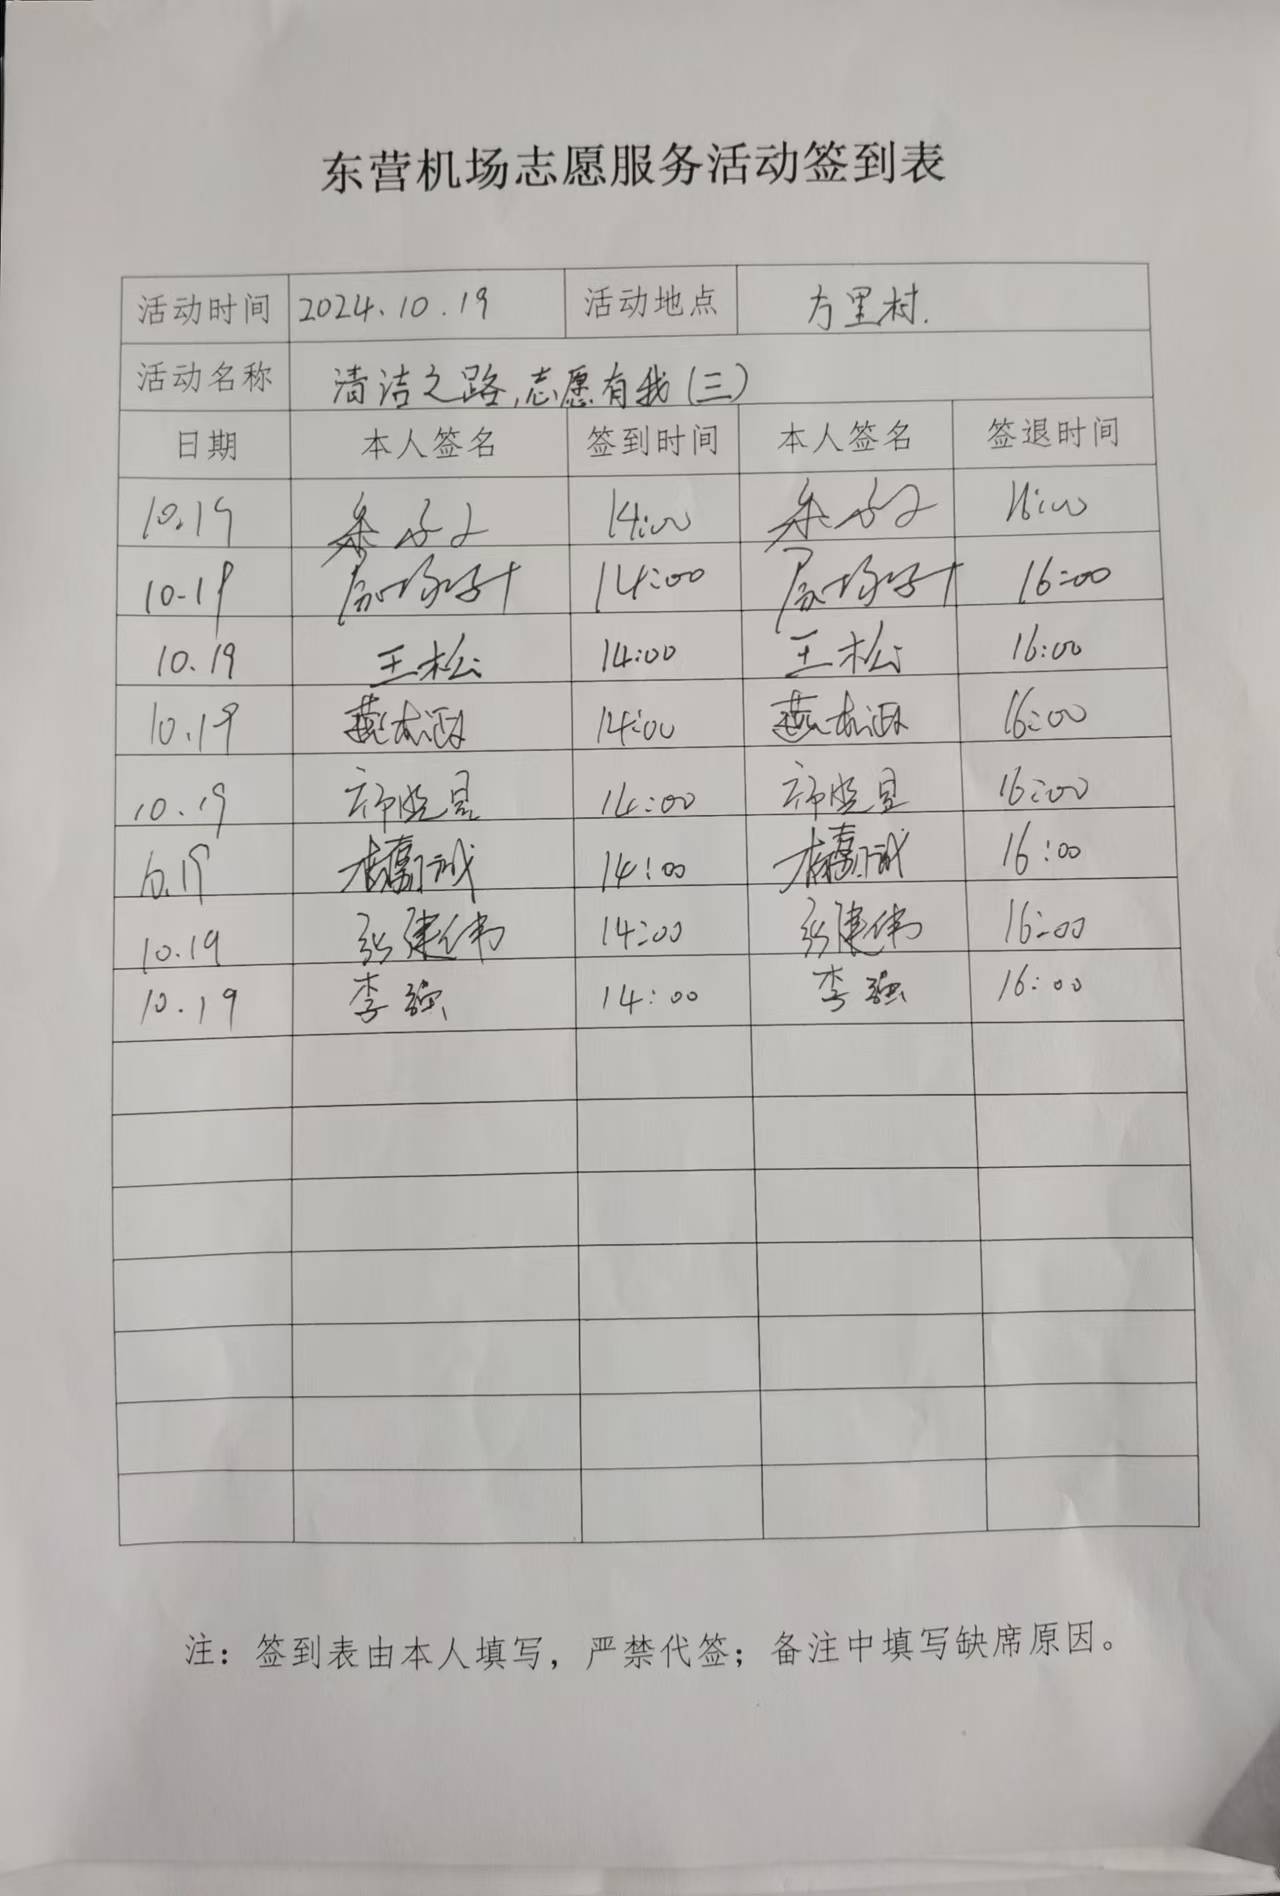 东营机场志愿服务活动签到表
活动时间 2024.10.19 活动地点 方里村.
活动名称 清洁之路,志愿有我(三)
日期 本人签名 签到时间 本人签名 签退时间
10.19 14:00 16:00
10.19 14:00 16:00
10.19 王松 14:00 王松 16:00
10.19 14:00 16:00
10.19 14:00 16:00
10.19 14:00 16:00
10.19 张建伟 14:00 张建伟 16:00
10.19 李强 14:00 李强 16:00
注：签到表由本人填写，严禁代签；备注中填写缺席原因。